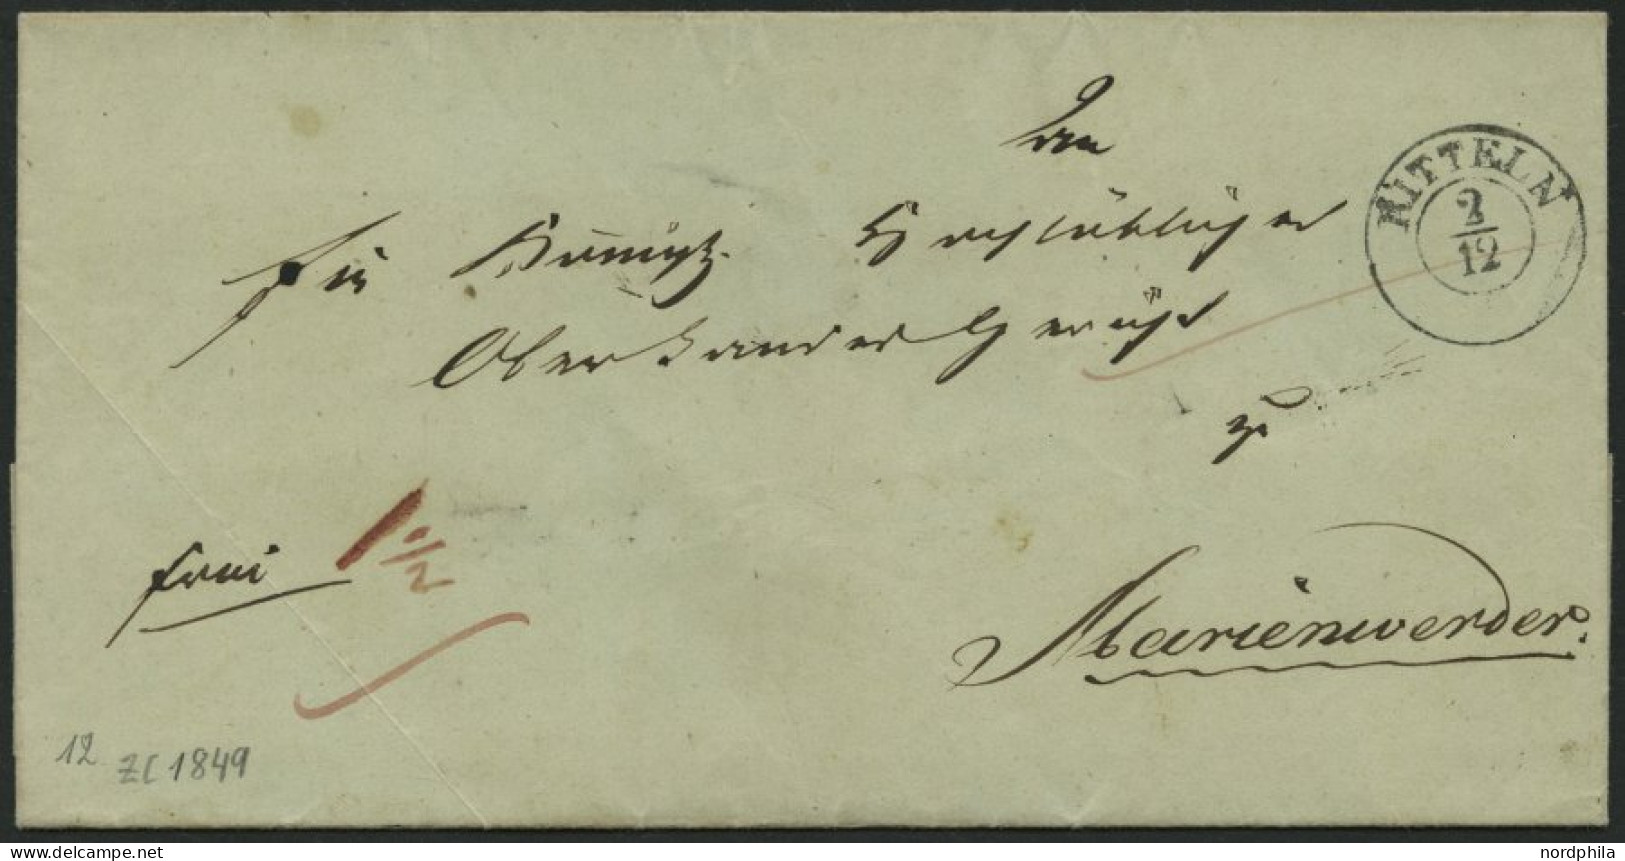 An
Ein Königl. Hochlöbliches
Ober Landes Gericht
zu
Marienwerder.
frei
1 0/2
RITTELN
2/12
12 ZC 1849
www.delcampe.net
nordphila